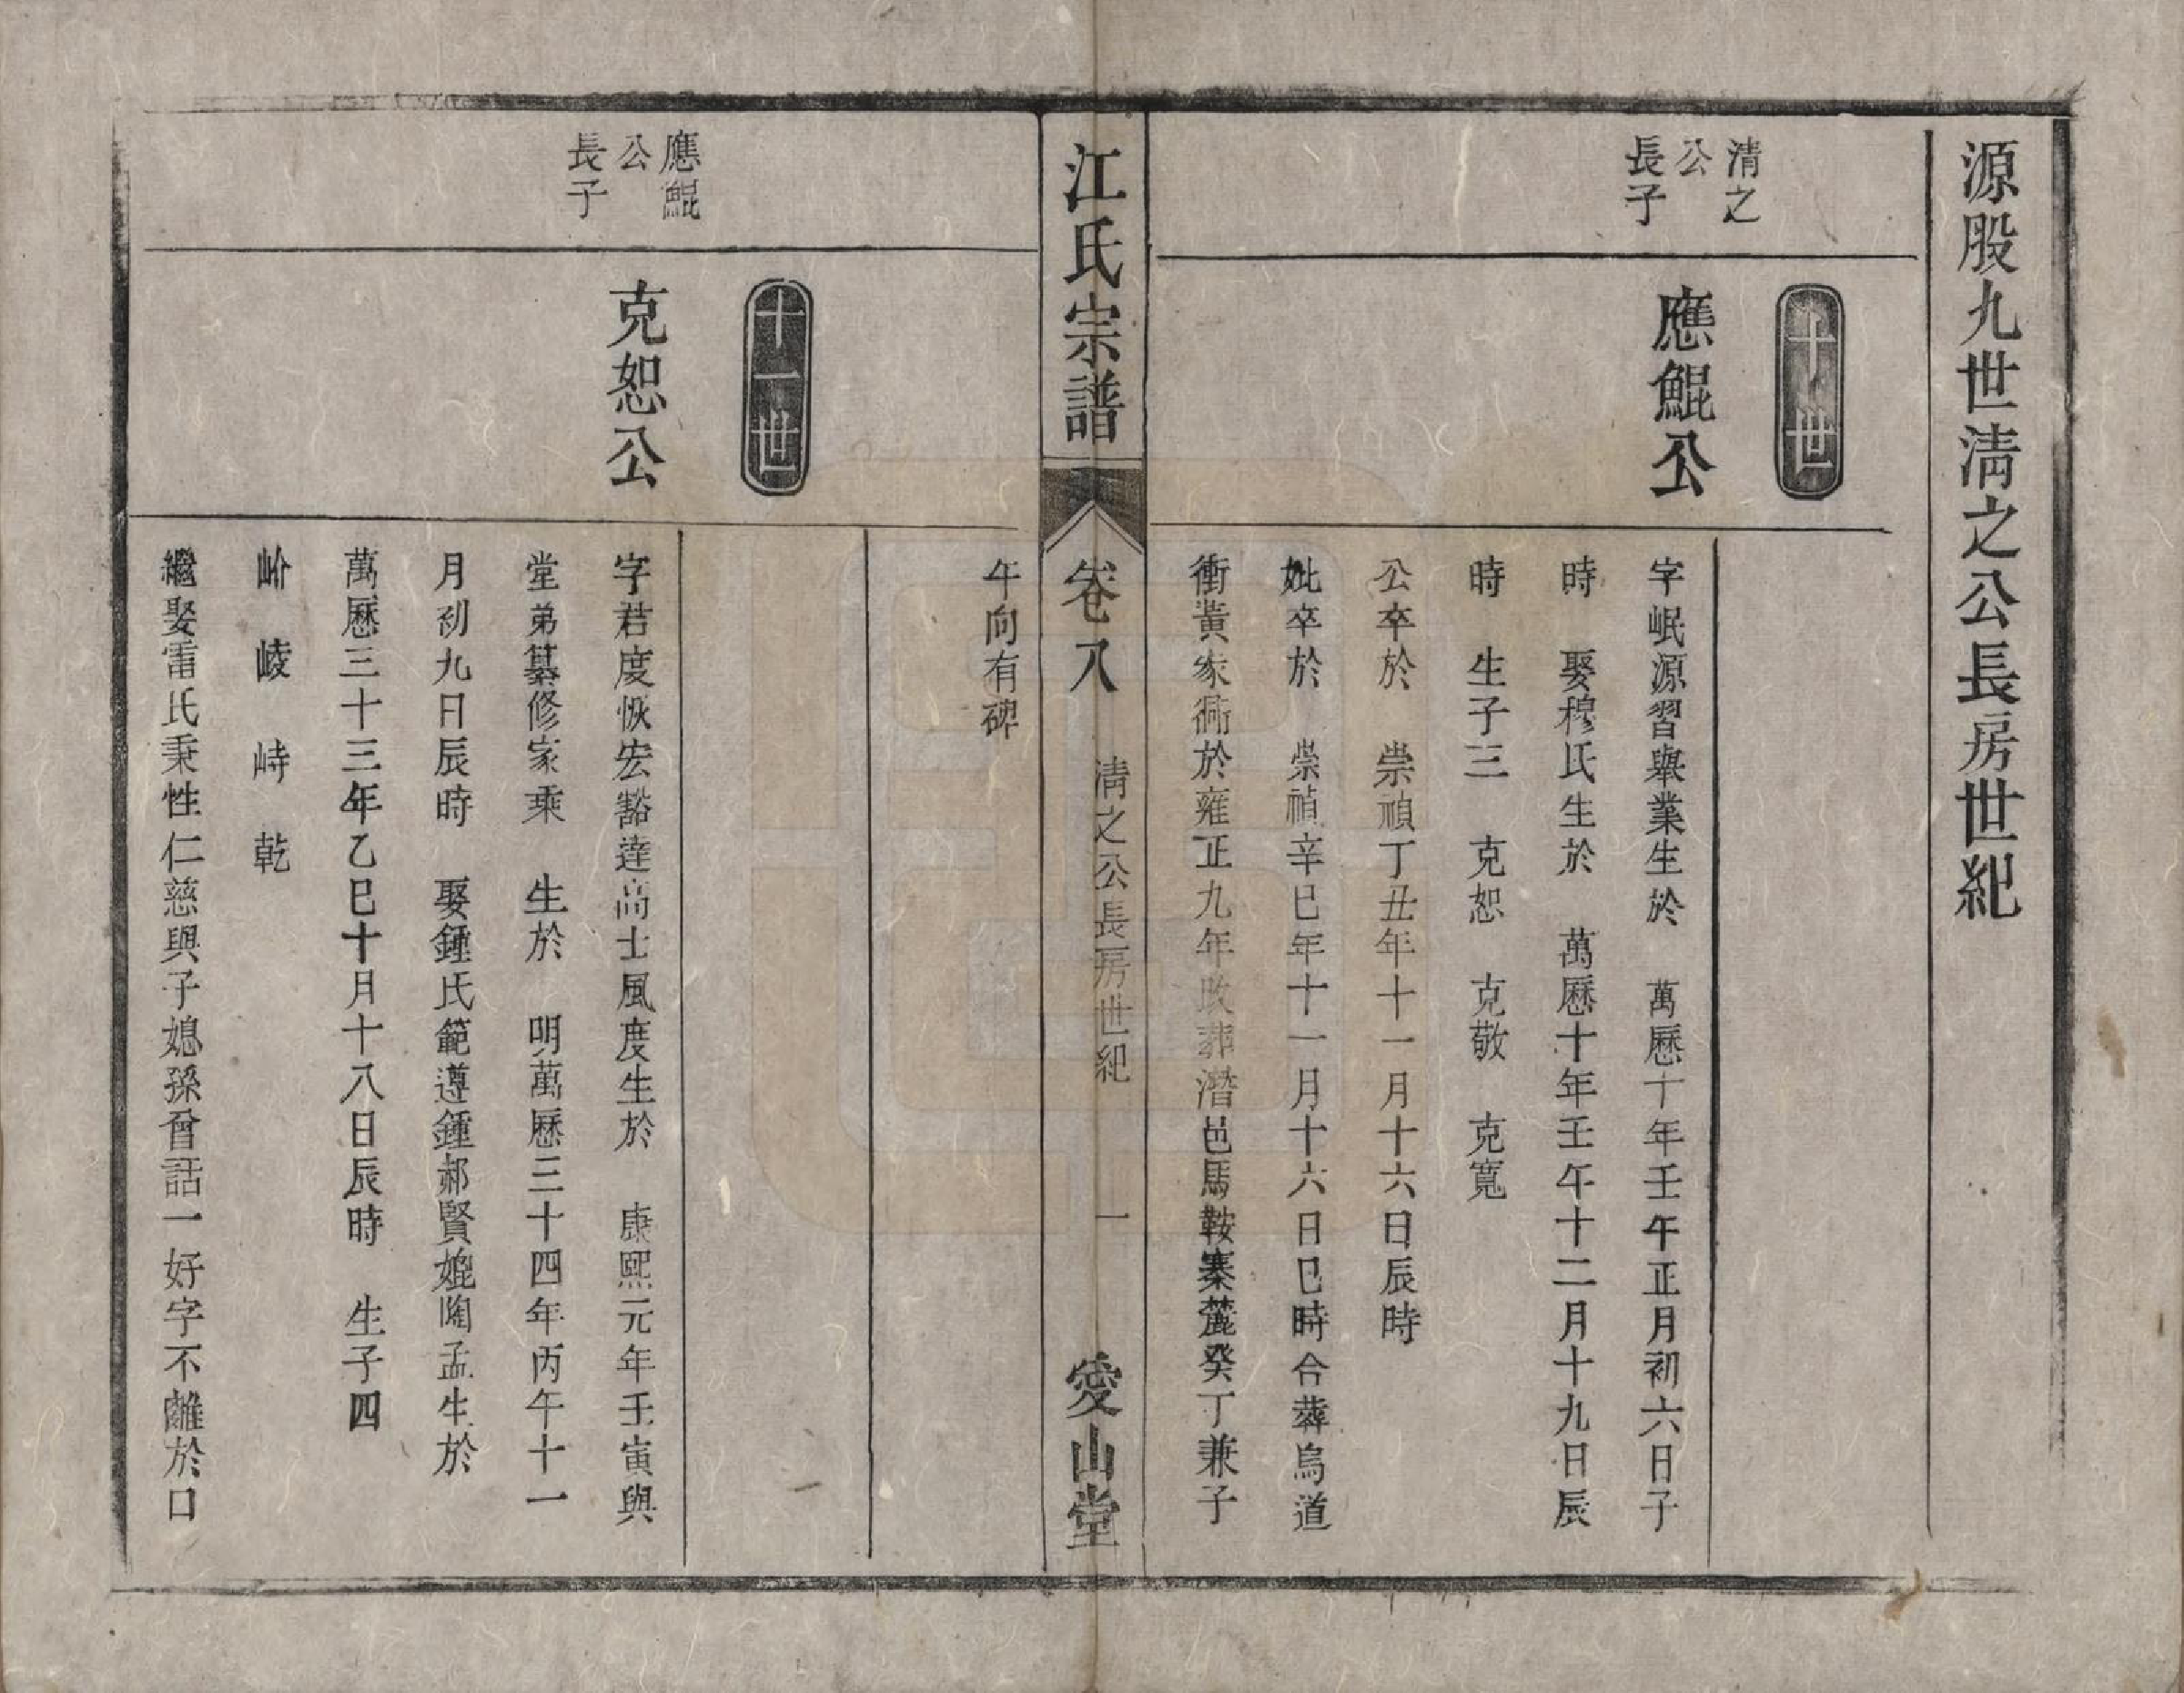 源股九世清之公長房世紀
十世
清之
公
長子
應鯤公
字岷源習舉業生於　萬歷十年壬午正月初六日子
時　娶穆氏生於　萬歷十年壬午十二月十九日辰
時　生子三　克恕　克敬　克寬
公卒於　崇禎丁丑年十一月十六日辰時
妣卒於　崇禎辛巳年十一月十六日巳時合葬烏道
衝黃家衕於雍正九年改葬潛邑馬鞍寨麓癸丁兼子
江氏宗譜
卷八
清之公長房世紀
一
愛山堂
午向有碑
十一世
應鯤
公
長子
克恕公
字君度恢宏豁達高士風度生於　康熙元年壬寅與
堂弟纂修家乘　生於　明萬歷三十四年丙午十一
月初九日辰時　娶鍾氏範遵鍾郝賢媲陶孟生於
萬歷三十三年乙巳十月十八日辰時　生子四
崙　崚　峙　乾
繼娶雷氏秉性仁慈與子媳孫曾話一好字不離於口